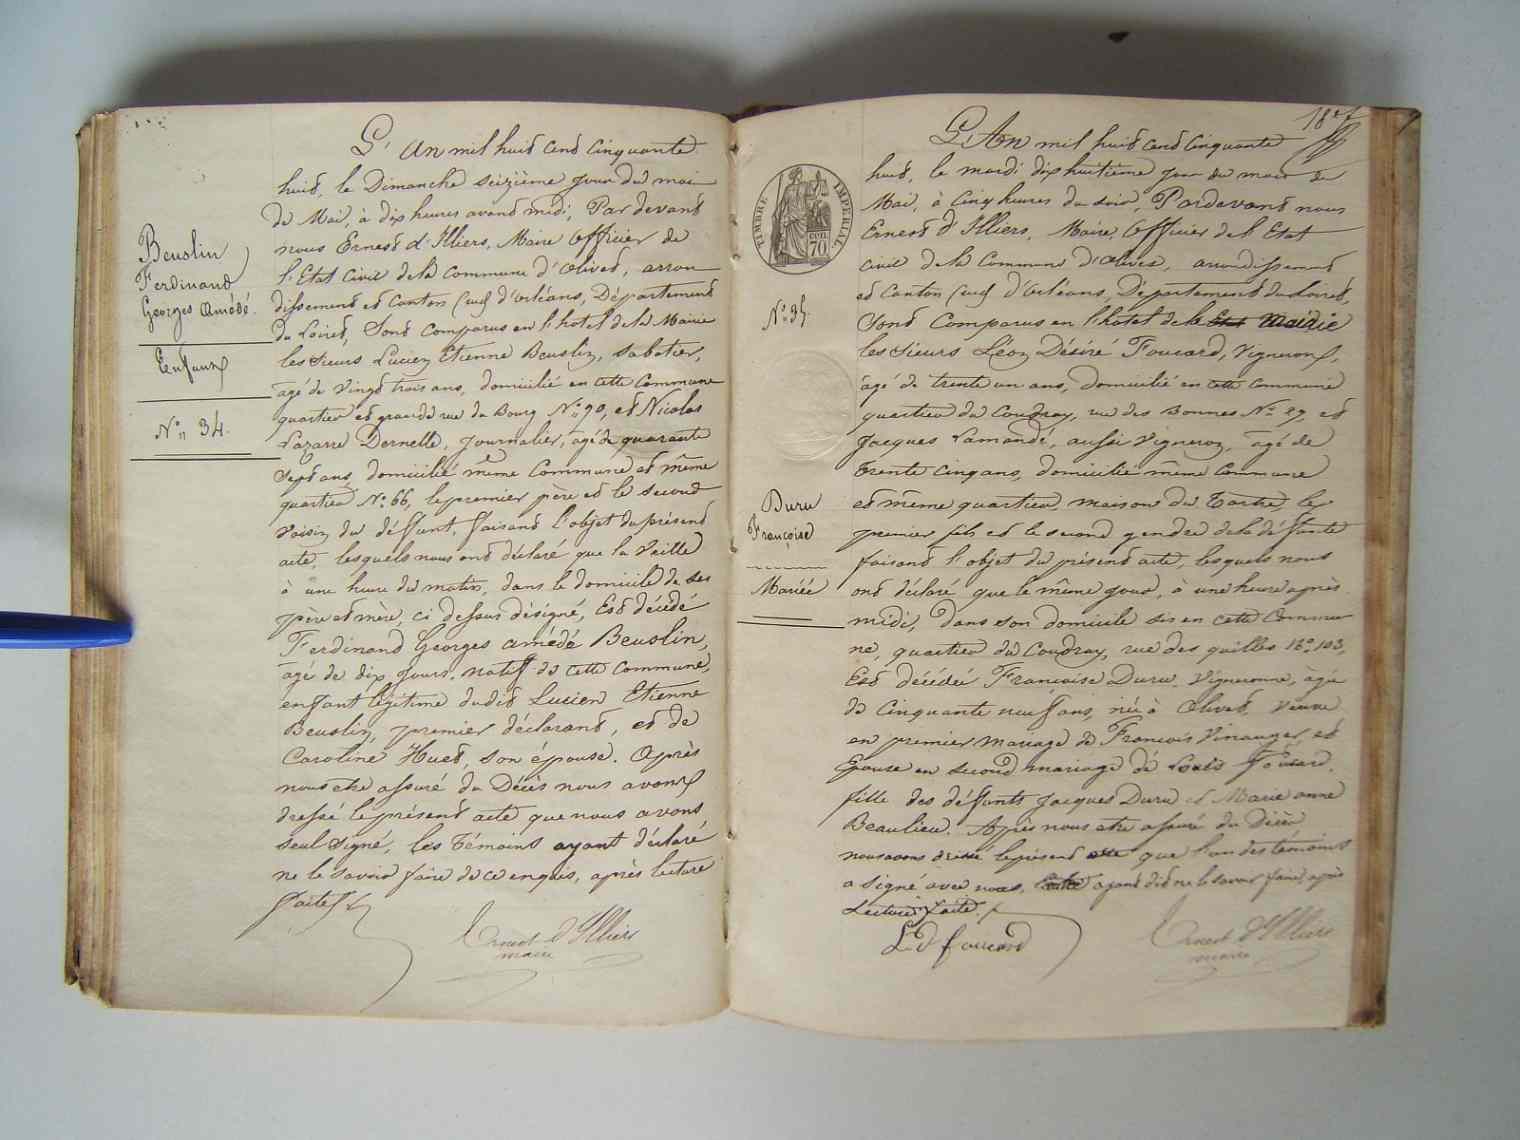 Beuslin
Ferdinand
Georges Amédé.
Enfant
N° 34.
L'An mil huit cent cinquante
huit, le Dimanche seizième jour du mois
de Mai, à dix heures avant midi, Par devant
nous Ernest d'Illiers, Maire Officier de
l'Etat Civil de la Commune d'Olivet, arron
dissement et Canton Sud d'Orléans, Département
du Loiret, Sont Comparus en l'hotel de la Mairie
les Sieurs Lucien Etienne Beuslin, sabotier,
âgé de Vingt trois ans, domicilié en cette Commune
quartier et grande rue du Bourg N° 90, et Nicolas
Lazarre Dernelle, journalier, âgé de quarante
Sept ans, domicilié même Commune et même
quartier N° 66, le premier père et le second
Voisin du déffunt, faisant l'objet du présent
acte, lesquels nous ont déclaré que la Veille
à une heure du matin, dans le domicile de ses
père et mère, ci dessus désigné, Est décédé
Ferdinand Georges Amédé Beuslin,
âgé de dix jours, natif de cette Commune,
enfant légitime dudit Lucien Etienne
Beuslin, premier déclarant, et de
Caroline Huet, son épouse. Après
nous etre assuré du Décès nous avons
dressé le présent acte que nous avons
seul signé, les témoins ayant déclaré
ne le savoir faire de ce enquis, après lecture
faite.
Ernest d'Illiers
maire
TIMBRE IMPERIAL
70 cen.
N° 35.
Duru
Françoise
Mariée
L'An mil huit cent cinquante
huit, le mardi dix huitième jour du mois de
Mai, à Cinq heures du soir, Pardevant nous
Ernest d'Illiers, Maire, Officier de l'Etat
Civil de la Commune d'Olivet, arrondissement
et Canton Sud d'Orléans, Département du Loiret,
Sont Comparus en l'hotel de la Etat Mairie
les Sieurs Léon Désiré Foucard, Vigneron,
âgé de trente un ans, domicilié en cette Commune
quartier du Coudray, rue des Bonnes N° 29, et
Jacques Lamande, aussi Vigneron, âgé de
trente Cinq ans, domicilié même Commune
et même quartier, maison du Tartre, le
premier fils et le second gendre de la déffunte
faisant l'objet du présent acte, lesquels nous
ont déclaré que le même jour, à une heure après
midi, dans son domicile sis en cette Commu
ne, quartier du Coudray, rue des quilles N° 103,
Est décédée Françoise Duru, Vigneronne, âgée
de Cinquante neuf ans, née à Olivet, Veuve
en premier mariage de François Vinauger, et
Epouse en second mariage de Louis Foucard,
fille des déffunts Jacques Duru et Marie anne
Beaulieu. Après nous etre assuré du Décès
nous avons dressé le présent acte que l'un des témoins
a signé avec nous, l'autre ayant dit ne le savoir faire, après
Lecture faite.
L.d foucard
Ernest d'Illiers
maire